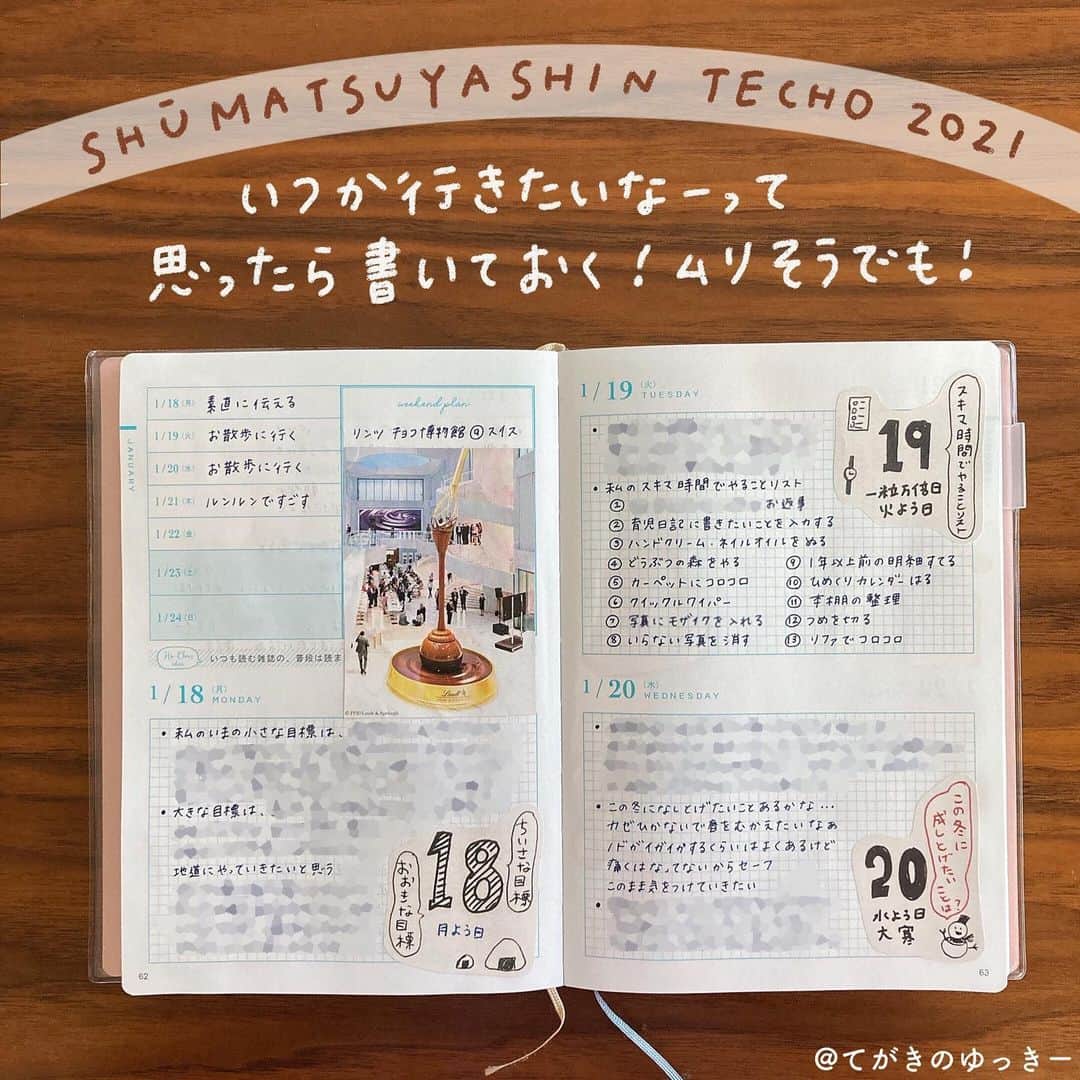 SHŪMATSUYASHIN TECHO 2021
いつか行きたいなーって
思ったら書いておく！ムリそうでも！
JANUARY
1/18(月) 素直に伝える
1/19(火) お散歩に行く
1/20(水) お散歩に行く
1/21(木) ルンルンですごす
1/22(金)
1/23(土)
1/24(日)
weekend plan
リンツ チョコ博物館@スイス
Lindt
いつも読む雑誌の、普段は読ま
1/18(月)
MONDAY
・私のいまの小さな目標は、
・大きな目標は、、
地道にやっていきたいと思う
ちいさな目標
おおきな目標
18
月よう日
62
1/19(火)
TUESDAY
スキマ時間でやることリスト
19
一粒万倍日
火よう日
・私のスキマ時間でやることリスト
① お返事
② 育児日記に書きたいことを入力する
③ ハンドクリーム・ネイルオイルをぬる
④ どうぶつの森をやる
⑤ カーペットにコロコロ
⑥ クイックルワイパー
⑦ 写真にモザイクを入れる
⑧ いらない写真を消す
⑨ 1年以上前の明細すてる
⑩ ひめくりカレンダーはる
⑪ 本棚の整理
⑫ つめを切る
⑬ リファでコロコロ
1/20(水)
WEDNESDAY
・この冬になしとげたいことあるかな…
カゼひかないで春をむかえたいなぁ
ノドがイガイガするくらいはよくあるけど
痛くはなってないからセーフ
このまま気をつけていきたい
この冬に成しとげたいことは？
20
水よう日
大寒
63
@てがきのゆっきー